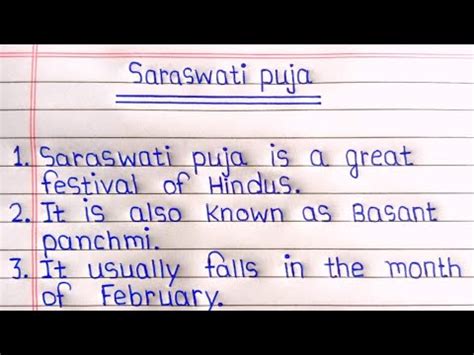 Saraswati puja
1. Saraswati puja is a great
festival of Hindus.
2. It is also known as Basant
panchmi.
3. It usually falls in the month
of February.